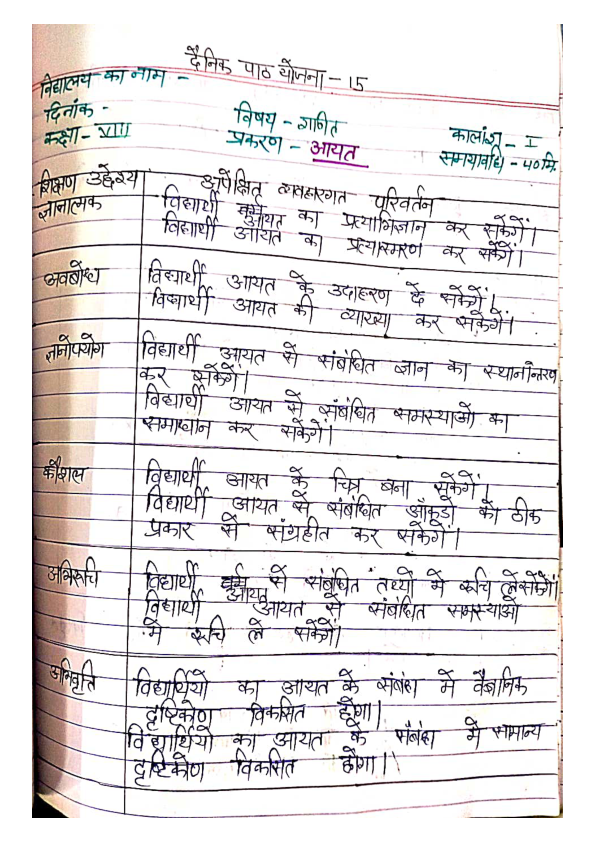 दैनिक पाठ योजना - 15
विद्यालय का नाम -
दिनांक -
विषय - गणित
कालांश - I
कक्षा - VIII
प्रकरण - आयत
समयावधि - 40 मि.
शिक्षण उद्देश्य अपेक्षित व्यवहारगत परिवर्तन
ज्ञानात्मक विद्यार्थी आयत का प्रत्याभिज्ञान कर सकेगें।
विद्यार्थी आयत का प्रत्यास्मरण कर सकेगें।
अवबोध विद्यार्थी आयत के उदाहरण दे सकेगें।
विद्यार्थी आयत की व्याख्या कर सकेगें।
ज्ञानोपयोग विद्यार्थी आयत से संबंधित ज्ञान का स्थानांन्तरण
कर सकेगें।
विद्यार्थी आयत से संबंधित समस्याओं का
समाधान कर सकेगें।
कौशल विद्यार्थी आयत के चित्र बना सकेगें।
विद्यार्थी आयत से संबंधित आँकड़ो को ठीक
प्रकार से संग्रहीत कर सकेगें।
अभिरूचि विद्यार्थी आयत से संबंधित तथ्यों में रूचि ले सकेगें।
विद्यार्थी आयत से संबंधित समस्याओं
में रूचि ले सकेगें।
अभिवृत्ति विद्यार्थियों का आयत के संबंध में वैज्ञानिक
दृष्टिकोण विकसित होगा।
विद्यार्थियो का आयत के संबंध में सामान्य
दृष्टिकोण विकसित होगा।